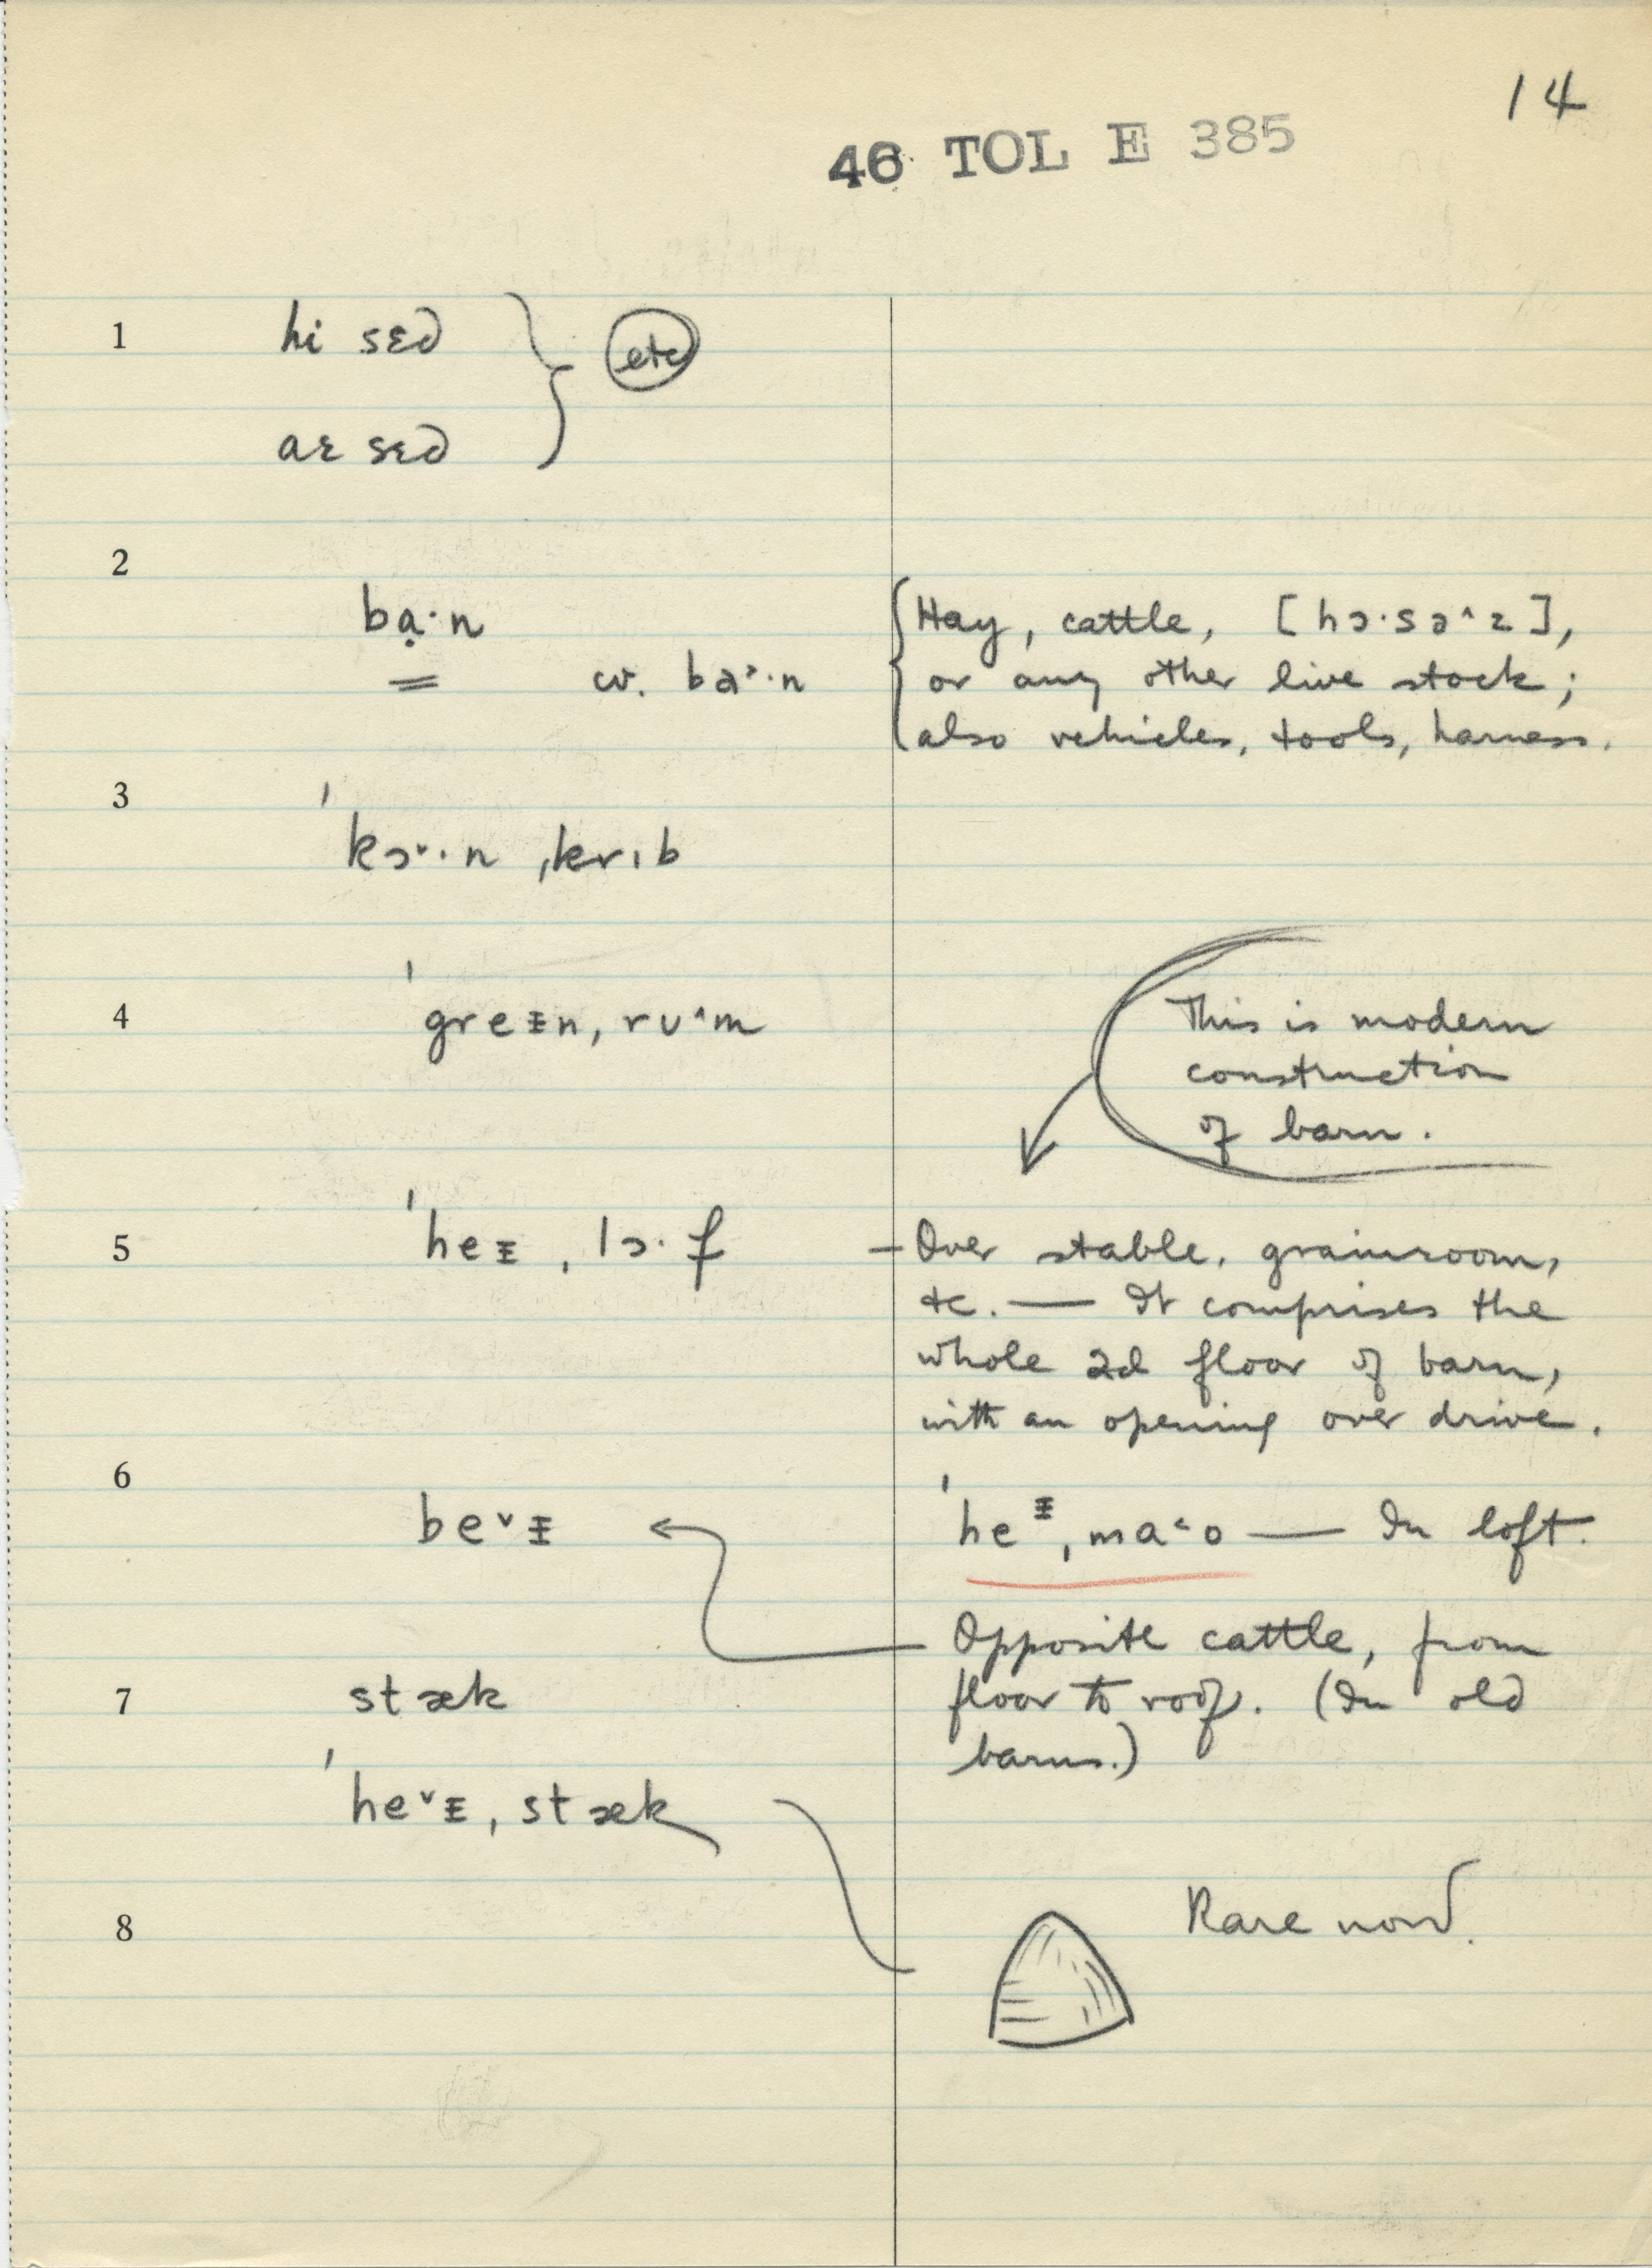 14
46 TOL E 385
1 hi sɛd } etc
aɛ sɛd
2
bạ·n
Hay, cattle, [hɔ·sə^z],
cv. ba˃·n
or any other live stock;
also vehicles, tools, harness.
3
ˈkɔ˅·n ˌkrɪb
4 ˈgreɪ̵n ˌrʊ^m
This is modern
construction
of barn.
5 ˈheɪ̵ ˌlɔ·f — Over stable, grainroom,
etc. — It comprises the
whole 2d floor of barn,
with an opening over drive.
6
be˅ɪ̵
ˈheɪ̵ ˌma˂o — In loft.
Opposite cattle, from
7 stæk
floor to roof. (In old
barns.)
ˈhe˅ɪ̵ ˌstæk
8
Rare now.